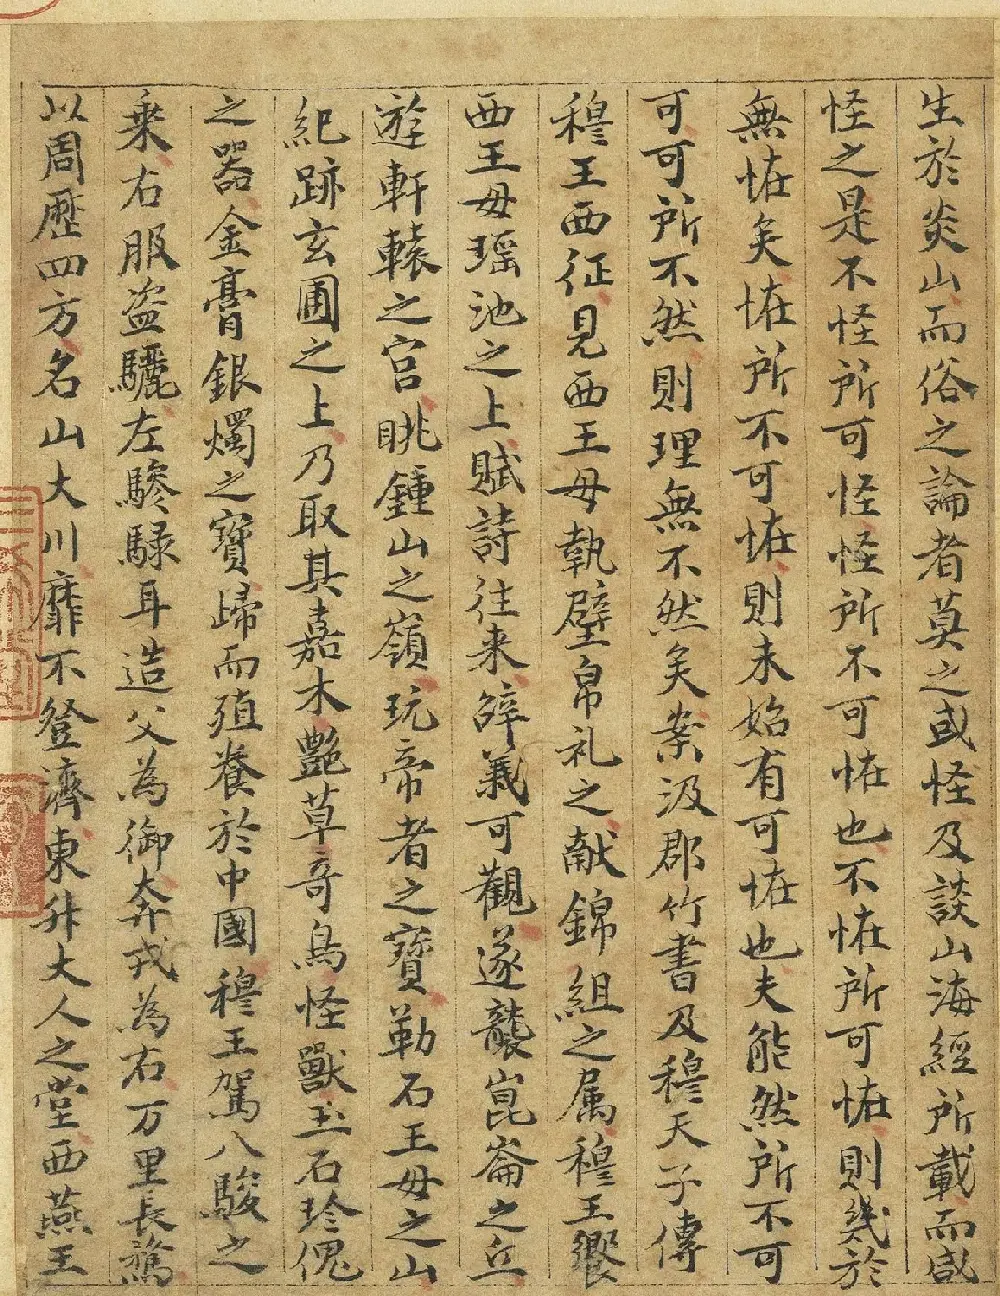 生於炎山而俗之論者莫之或怪及談山海經所載而咸
怪之是不怪所可怪怪所不可恠也不恠所可恠則幾於
無恠矣恠所不可恠則未始有可恠也夫能然所不可
可可所不然則理無不然矣案汲郡竹書及穆天子傳
穆王西征見西王母執璧帛礼之献錦組之属穆王饗
西王母瑶池之上賦詩往来辞義可觀遂襲崑崙之丘
遊軒轅之宫眺鍾山之嶺玩帝者之寶勒石王母之山
紀跡玄圃之上乃取其嘉木艶草奇鳥怪獸玉石珍傀
之器金膏銀燭之寶歸而殖養於中國穆王駕八駿之
乗右服盗驪左驂騄耳造父為御奔戎為右万里長騖
以周歷四方名山大川靡不登濟東升大人之堂西燕王